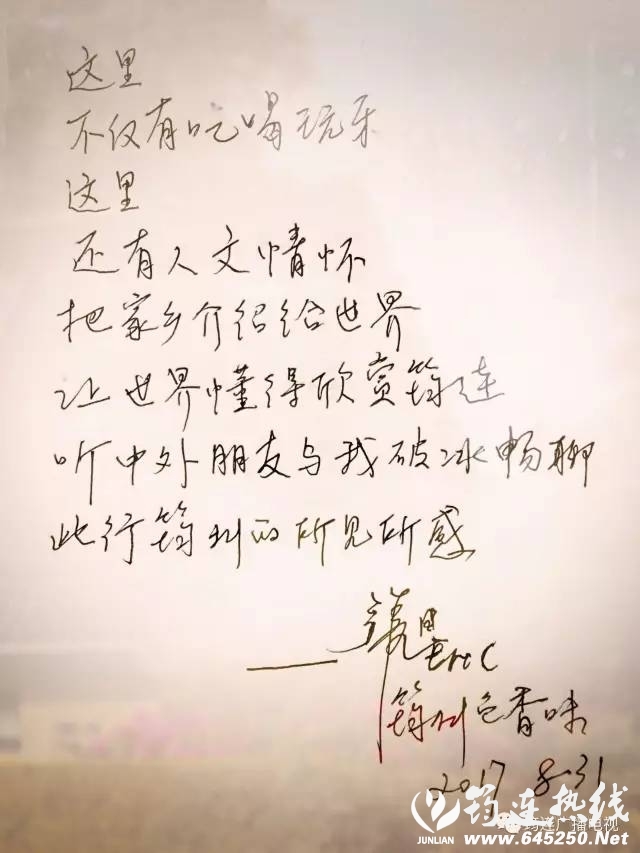 这里
不仅有吃喝玩牙
这里
还有人文情怀
把家乡介绍给世界
让世界懂得欣赏筠连
听中外朋友与我破冰畅聊
此行筠州的所见所感
Eric
筠州色香味
2017 8.31
筠连广播电视
筠连热线
JUNLIAN www.645250.Net